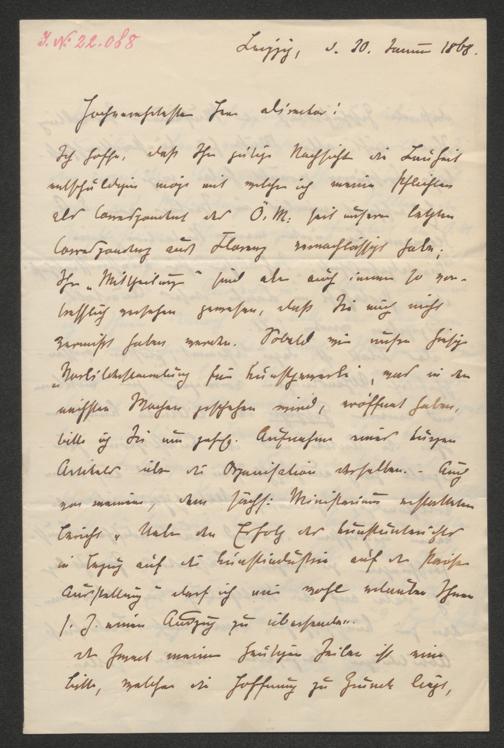 J. № 22.088
Leipzig, d. 30. Januar 1868.
Hochverehrtester Herr Director!
Ich hoffe, daß Ihre gütige Nachsicht die Faulheit
entschuldigen möge mit welcher ich meine Pflichten
als Correspondent des Ö. M. seit unserer letzten
Correspondenz aus Florenz vernachlässigt habe;
Ihre „Mittheilungen" sind aber auch immer so vor-
trefflich versehen gewesen, daß Sie mich nicht
vermißt haben werden. Sobald wir unsere hiesige
„Vorbildersammlung für Kunstgewerbe", was in den
nächsten Wochen geschehen wird, eröffnet haben,
bitte ich Sie um gefl. Aufnahme eines kurzen
Artikels über die Organisation derselben. – Auch
von meinem, dem sächs. Ministerium erstatteten
Bericht „Ueber den Erfolg des Kunstunterrichts
in Bezug auf die Kunstindustrie auf der Pariser
Ausstellung" darf ich mir wohl erlauben Ihnen
s. Z. einen Auszug zu übersenden.
Der Zweck meiner heutigen Zeilen ist eine
Bitte, welcher die Hoffnung zu Grunde liegt,